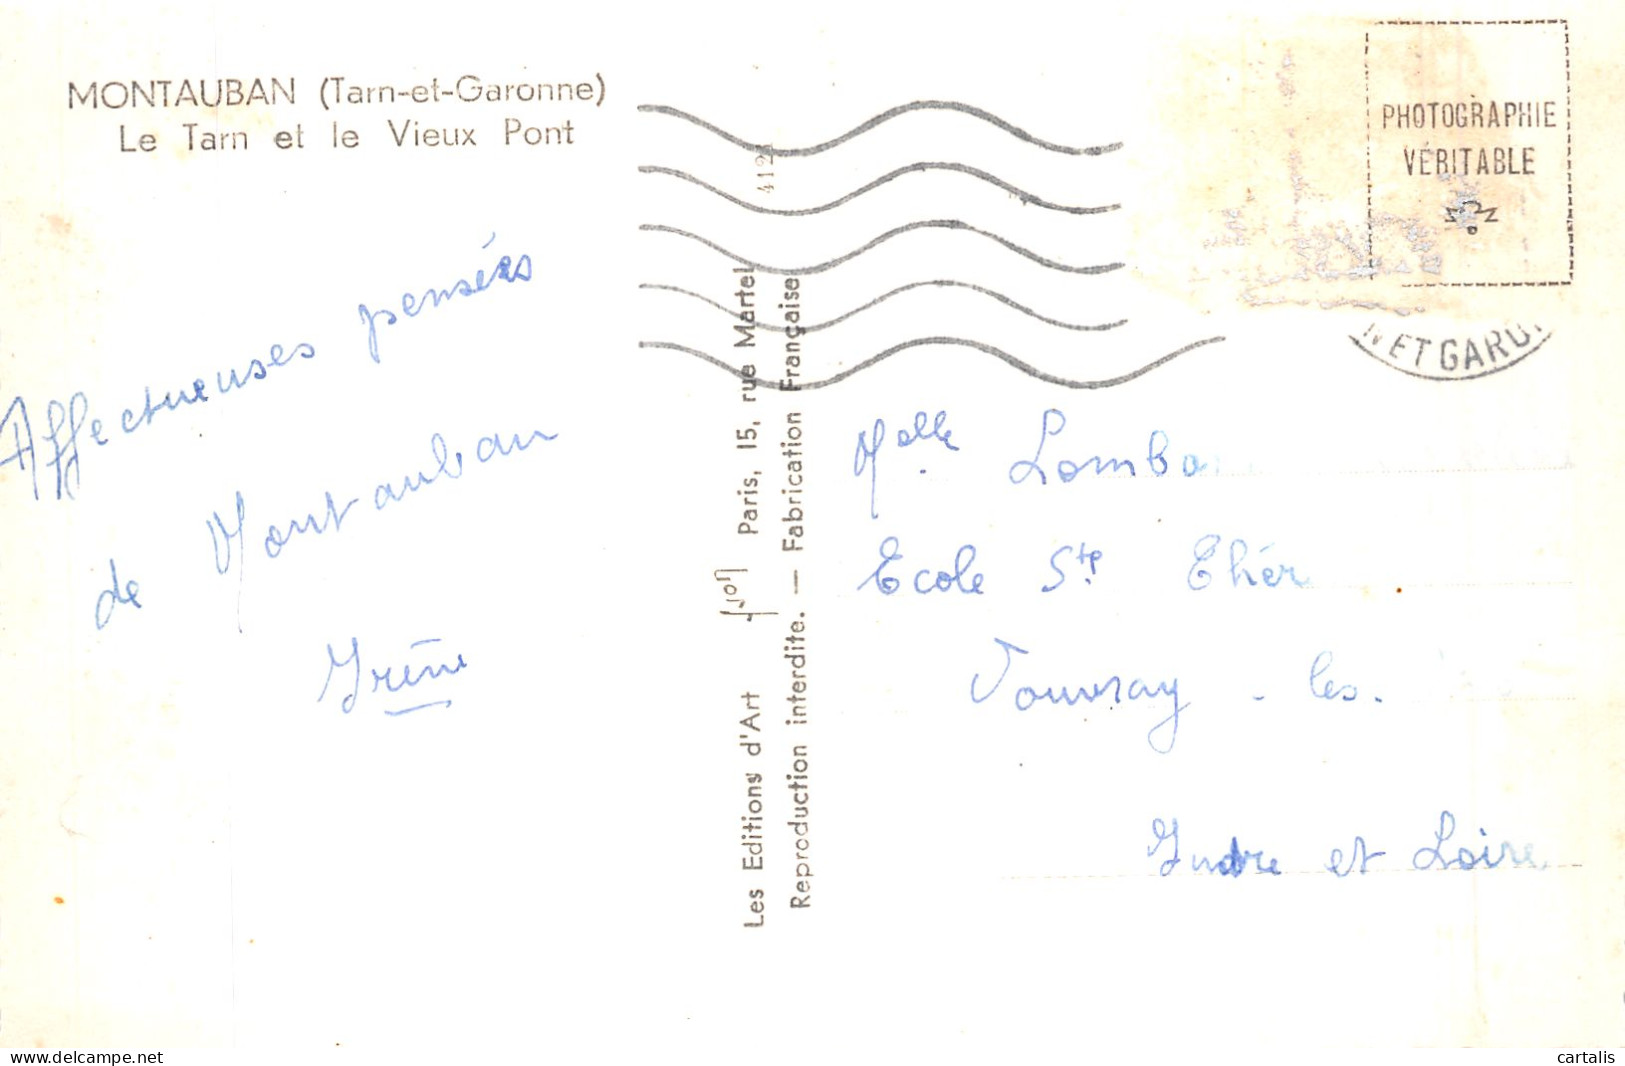 MONTAUBAN (Tarn-et-Garonne)
Le Tarn et le Vieux Pont
PHOTOGRAPHIE
VÉRITABLE
N ET GARO
Affectueuses pensées
de Montauban
Irène
Les Editions d'Art Yvon Paris, 15, rue Martel
Reproduction interdite. — Fabrication Française
Melle Lomba
Ecole Ste Thér
Vouvray - les.
Indre et Loire
delcampe.net
cartalis